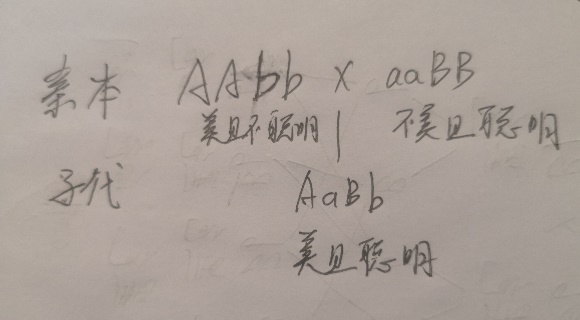 亲本 AAbb × aaBB
美且不聪明 | 不美且聪明
子代 AaBb
美且聪明